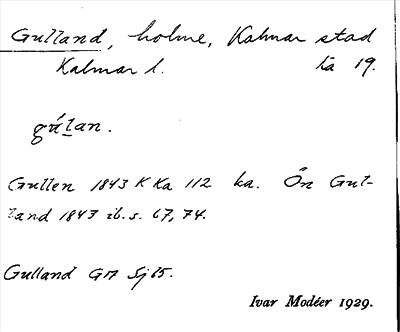 Gulland, holme, Kalmar stad
Kalmar l. ka 19.
gúlan.
Gullen 1843 K Ka 112 ka. Ön Gul-
land 1847 ib. s. 67, 74.
Gulland G17 Sj 65.
Ivar Modéer 1929.